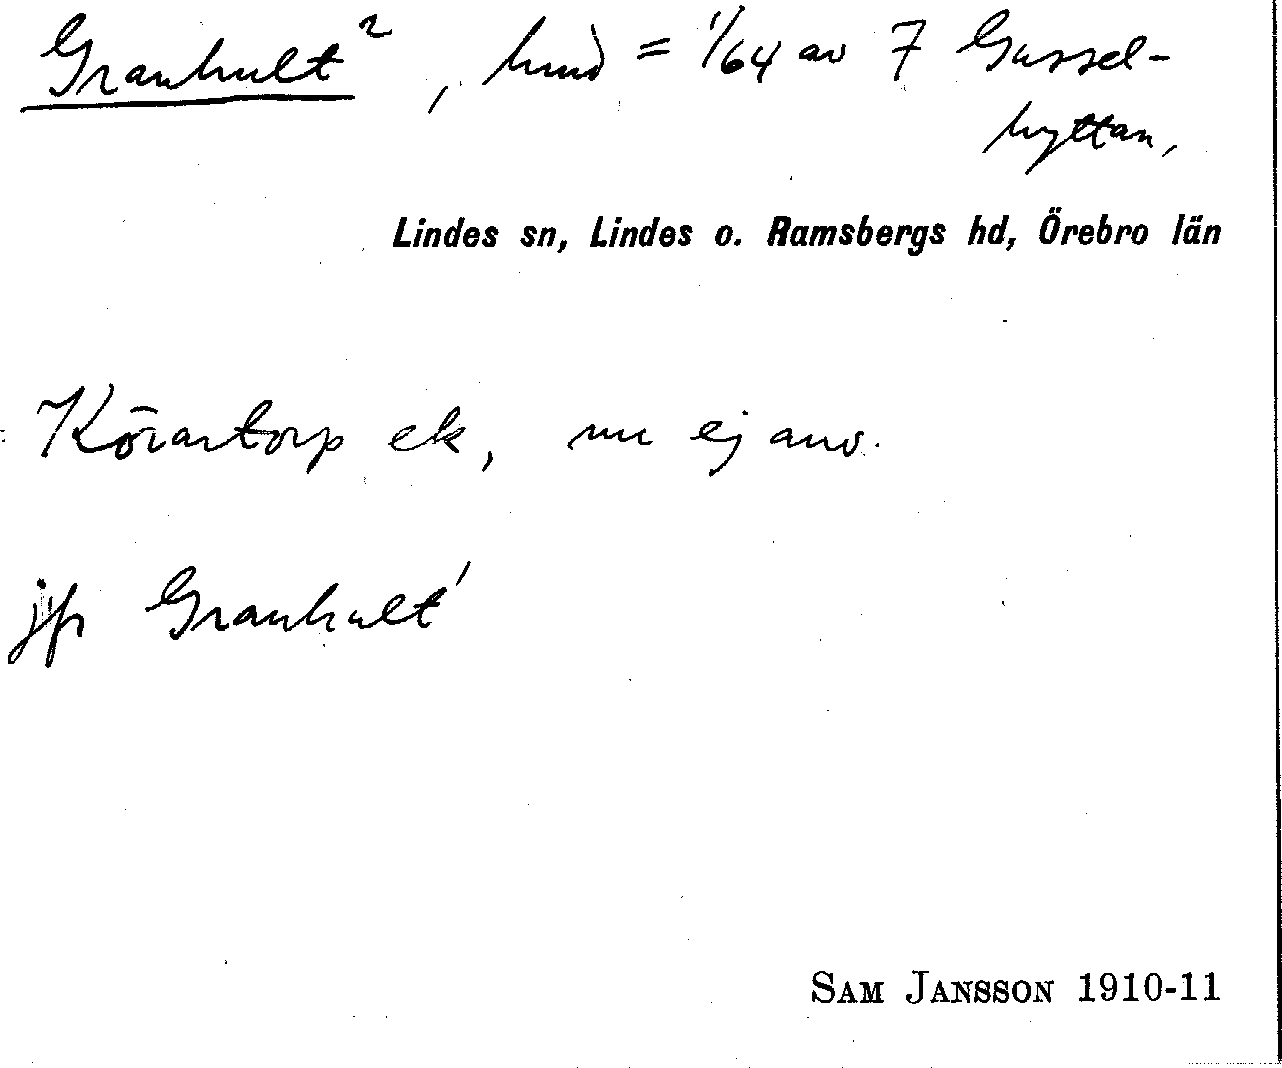 Granhult², hmd = 1/64 av 7 Gussel-
hyttan,
Lindes sn, Lindes o. Ramsbergs hd, Örebro län
Körartorp ek, nu ej anv.
jfr Granhult¹
SAM JANSSON 1910-11